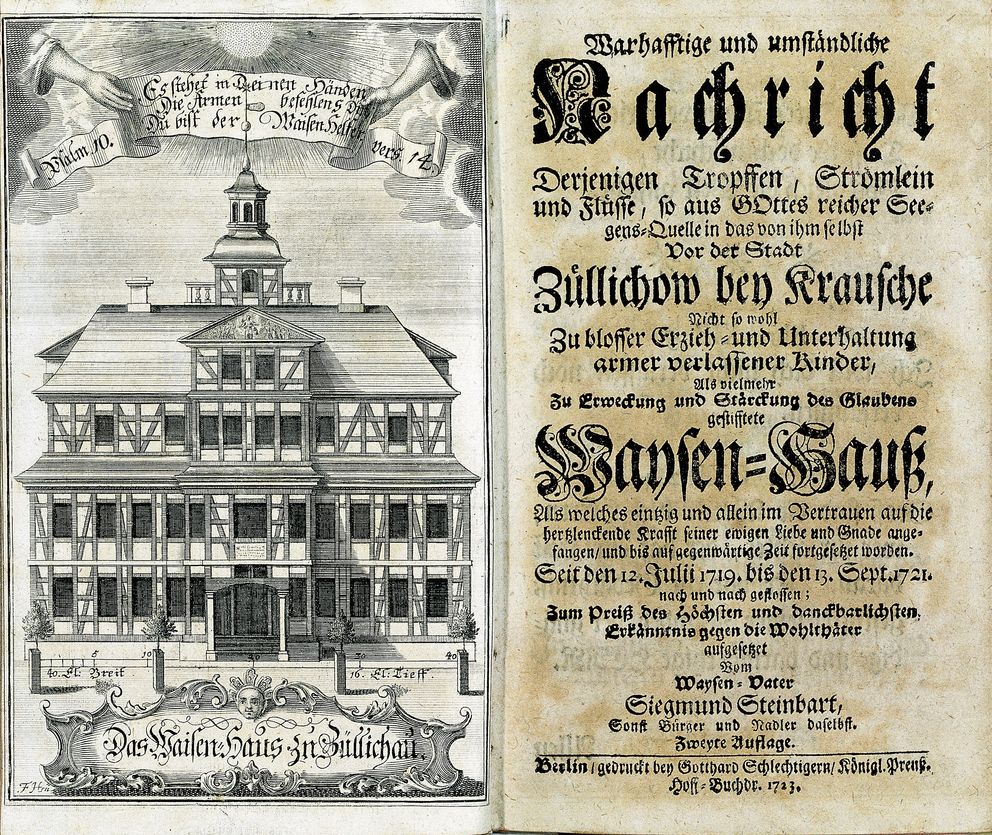 Es stehet in Deinen Händen
Die Armen befehlens Dir
Du bist der Waisen Helfer
Psalm 10. vers. 14.
5 10 30 40
40. El: Breit 16. El: Tieff.
Das Waisen-Haus zu Züllichau.
Warhafftige und umständliche
Nachricht
Derjenigen Tropffen, Strömlein
und Flüsse, so aus GOttes reicher See-
gens-Quelle in das von ihm selbst
Vor der Stadt
Züllichow bey Krausche
Nicht so wohl
Zu blosser Erzieh- und Unterhaltung
armer verlassener Kinder,
Als vielmehr
Zu Erweckung und Stärckung des Glaubens
gestifftete
Waysen-Hauß,
Als welches eintzig und allein im Vertrauen auf die
hertzlenckende Krafft seiner ewigen Liebe und Gnade ange-
fangen/ und bis auf gegenwärtige Zeit fortgesetzet worden.
Seit den 12. Julii 1719. bis den 13. Sept. 1721.
nach und nach geflossen;
Zum Preiß des Höchsten und danckbarlichsten
Erkänntnis gegen die Wohlthäter
aufgesetzet
Vom
Waysen-Vater
Siegmund Steinbart,
Sonst Bürger und Nadler daselbst.
Zweyte Auflage.
Berlin/ gedruckt bey Gotthard Schlechtigern/ Königl. Preuß.
Hoff-Buchdr. 1723.